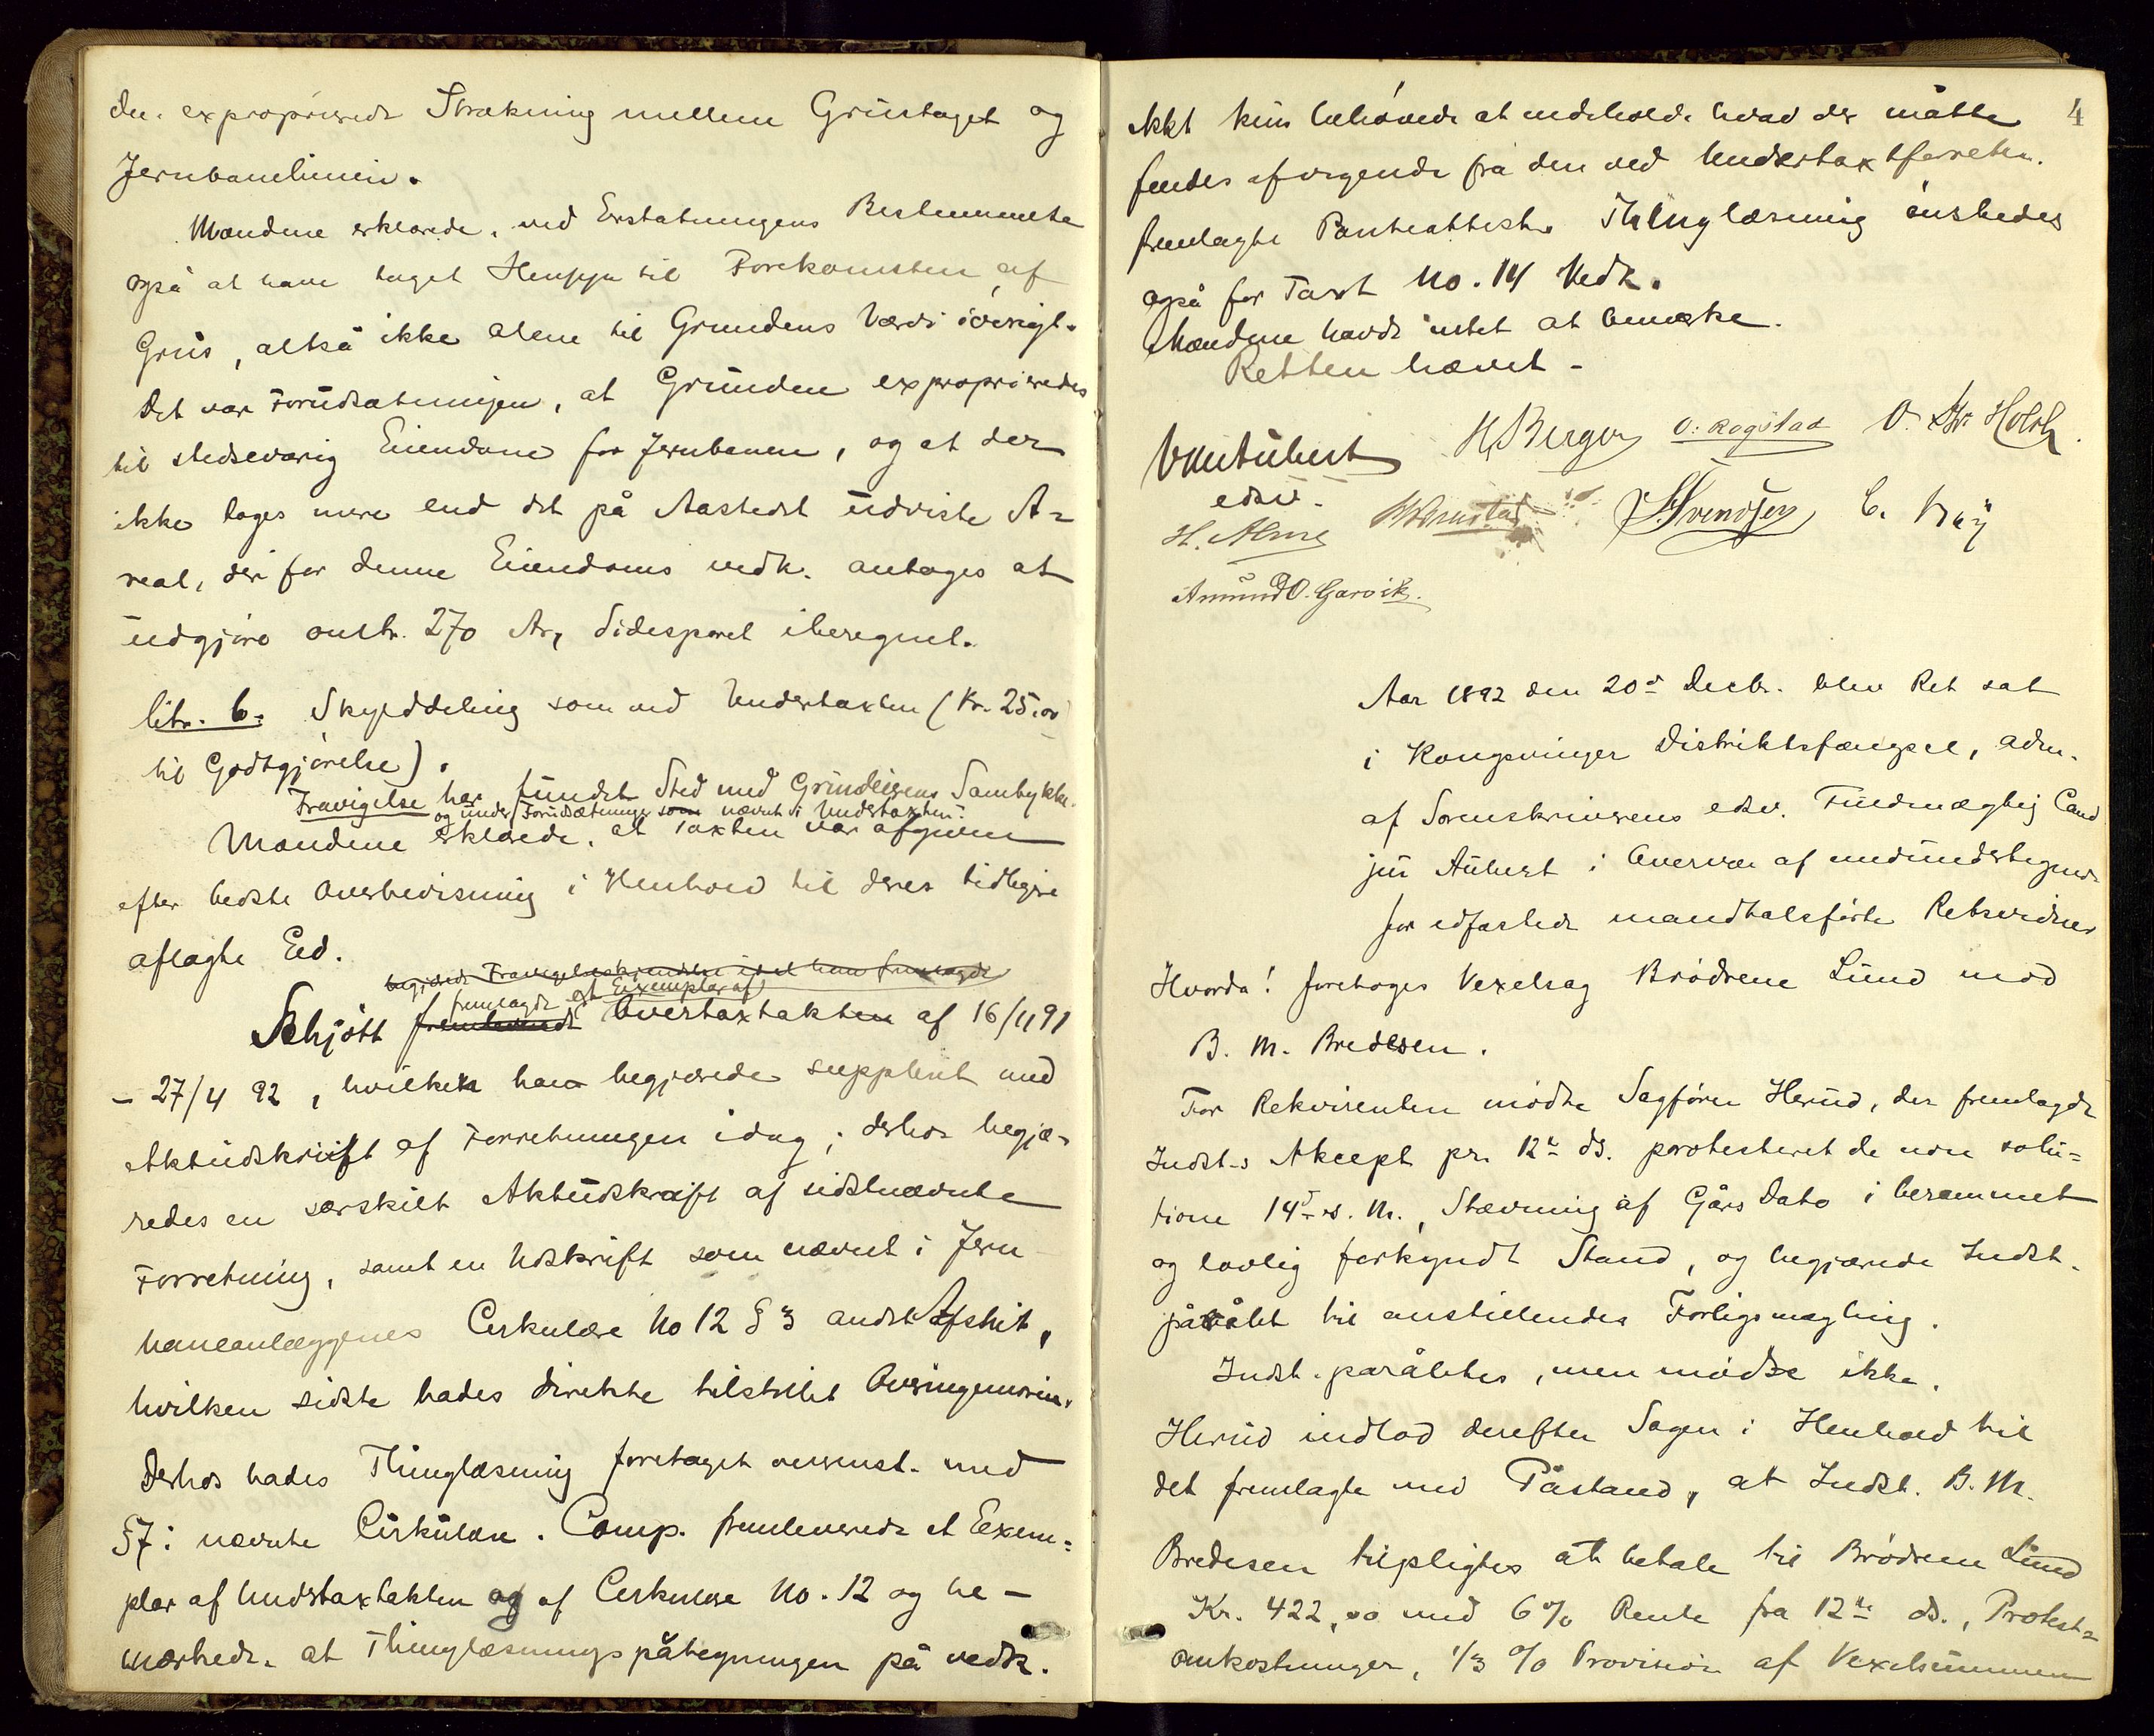 den exproprierede Strækning mellem Grustaget og
Jernbanelinien.
Mændene erklærede, ved Erstatningens Bestemmelse
også at have taget Hensyn til Forekomsten af
Grus, altså ikke alene til Grundens Værdi iøvrigt.
Det var Forudsætningen, at Grunden exproprieredes
til stedsevarig Eiendom for Jernbanen, og at der
ikke toges mere end det på Aastedet udviste A=
real, der for denne Eiendoms vedk. antages at
udgjøre omtr. 270 Ar, Sidesporet iberegnet.
litr. b. Skylddeling som ved Undertaxten (Kr. 25,00
til Godtgjørelse).
Fravigelse har fundet Sted med Grundeierens Samtykke
og under Forudsætninger som nævnt i Undertaxten.
Mændene erklærede, at Taxten var afgiven
efter bedste Overbevisning i Henhold til deres tidligere
aflagte Eed.
begjærede Fravigelseskjendelse idet han fremlagde
fremlagde et Exemplar af
Schjøtt fremleverede Overtaxtakten af 16/11 91
– 27/4 92, hvilken han begjærede suppleret med
Aktudskrift af Forretningen idag; derhos begjæ=
redes en særskilt Aktudskrift af sidstnævnte
Forretning, samt en Udskrift som nævnt i Jern-
baneanlæggenes Cirkulære No 12 § 3 andet Afsnit,
hvilken sidste bades direkte tilstillet Overingeniøren.
Derhos bades Thinglæsning foretaget overenst. med
§ 7 i nævnte Cirkulære. Comp. fremleverede et Exem=
plar af Undertaxtakten og af Cirkulære No. 12 og be–
mærkede, at Thinglæsningspåtegningen på vedk.
4
Akt kun behøvede at indeholde hvad der måtte
findes afvigende fra den ved Undertaxtforretn.
fremlagte Panteattest. Thinglæsning ønskedes
også for Taxt No. 14 Vedk.
Mændene havde intet at bemærke.
Retten hævet –
VMAubert H Berger O. Rogstad O. Kr. Holth.
edsv.
H. Alme Svendsen C. Bøy
Amund O. Garvik.
Aar 1892 den 20de Decbr. blev Ret sat
i Kongsvinger Distriktsfængsel, adm.
af Sorenskriverens edsv. Fuldmægtig Cand
jur Aubert i Overvær af medundertegnede
for edfæstede mandtalsførte Retsvidner
Hvorda! foretoges Vexelsag Brødrene Lund mod
B. M. Bredesen.
For Rekvirenten mødte Sagfører Herud, der fremlagde
Indst-s Akcept pr. 12te ds. protesteret de non solu=
tione 14de s. M., Stævning af Gårs Dato i berammet
og lovlig forkyndt Stand, og begjærede Indst.
påråbt til anstillendes Forligsmægling.
Indst. paråbtes, men mødte ikke.
Herud indlod derefter Sagen i Henhold til
det fremlagte med Påstand, at Indst. B. M.
Bredesen tilpligtes at betale til Brødrene Lund
Kr. 422,00 med 6 % Rente fra 12te ds., Protest=
omkostninger, 1/3 % Provision af Vexelsummen